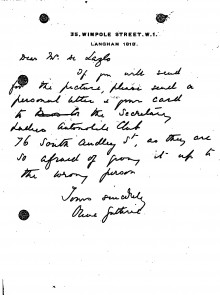 35, WIMPOLE STREET. W.1.
LANGHAM 1818.
Dear Mr. de Laszlo
If you will send
for the picture, please send a
personal letter & your card
to the Secretary
Ladies Automobile Club
76 South Audley St, as they are
so afraid of giving it up to
the wrong person
Yours sincerely
Olive Guthrie